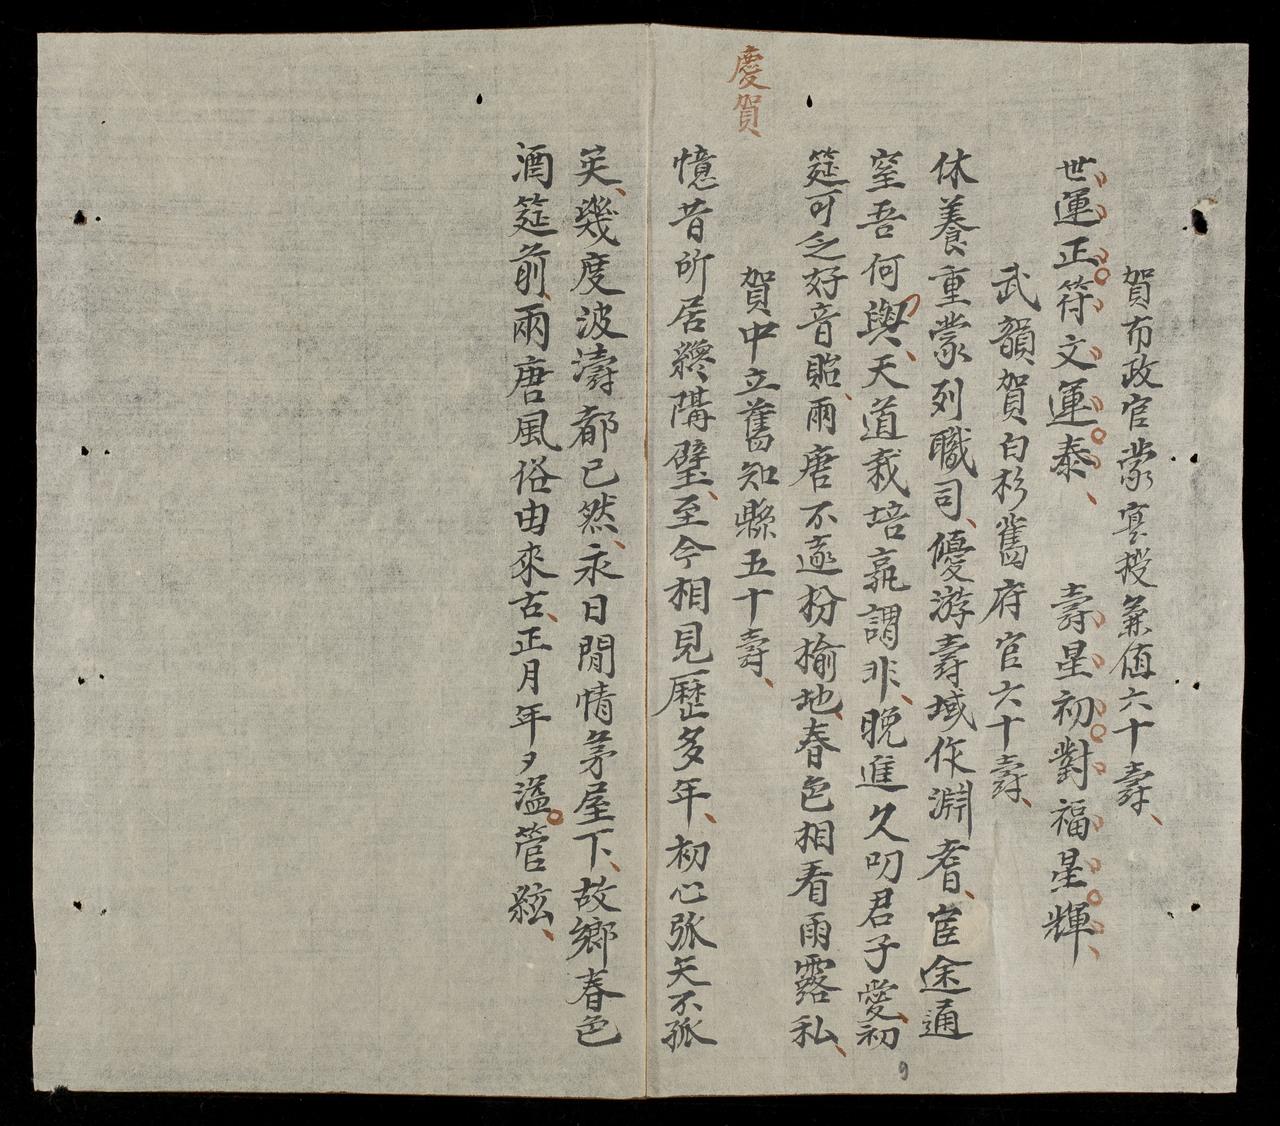 賀布政官蒙寔授兼值六十壽
世運正符文運泰 壽星初對福星輝
武韻賀白杉舊府官六十壽
休養重蒙列職司優游壽域作淵耆宦途通
窒吾何與天道栽培孰謂非晚進久叨君子愛初
筵可乏好音貽兩唐不遠枌榆地春色相看雨露私
慶賀
賀中立舊知縣五十壽
憶昔所居纔隔壁至今相見歷多年初心弧矢不孤
笑幾度波濤都已然永日閒情茅屋下故鄉春色
酒筵前兩唐風俗由來古正月年々溢管絃
9